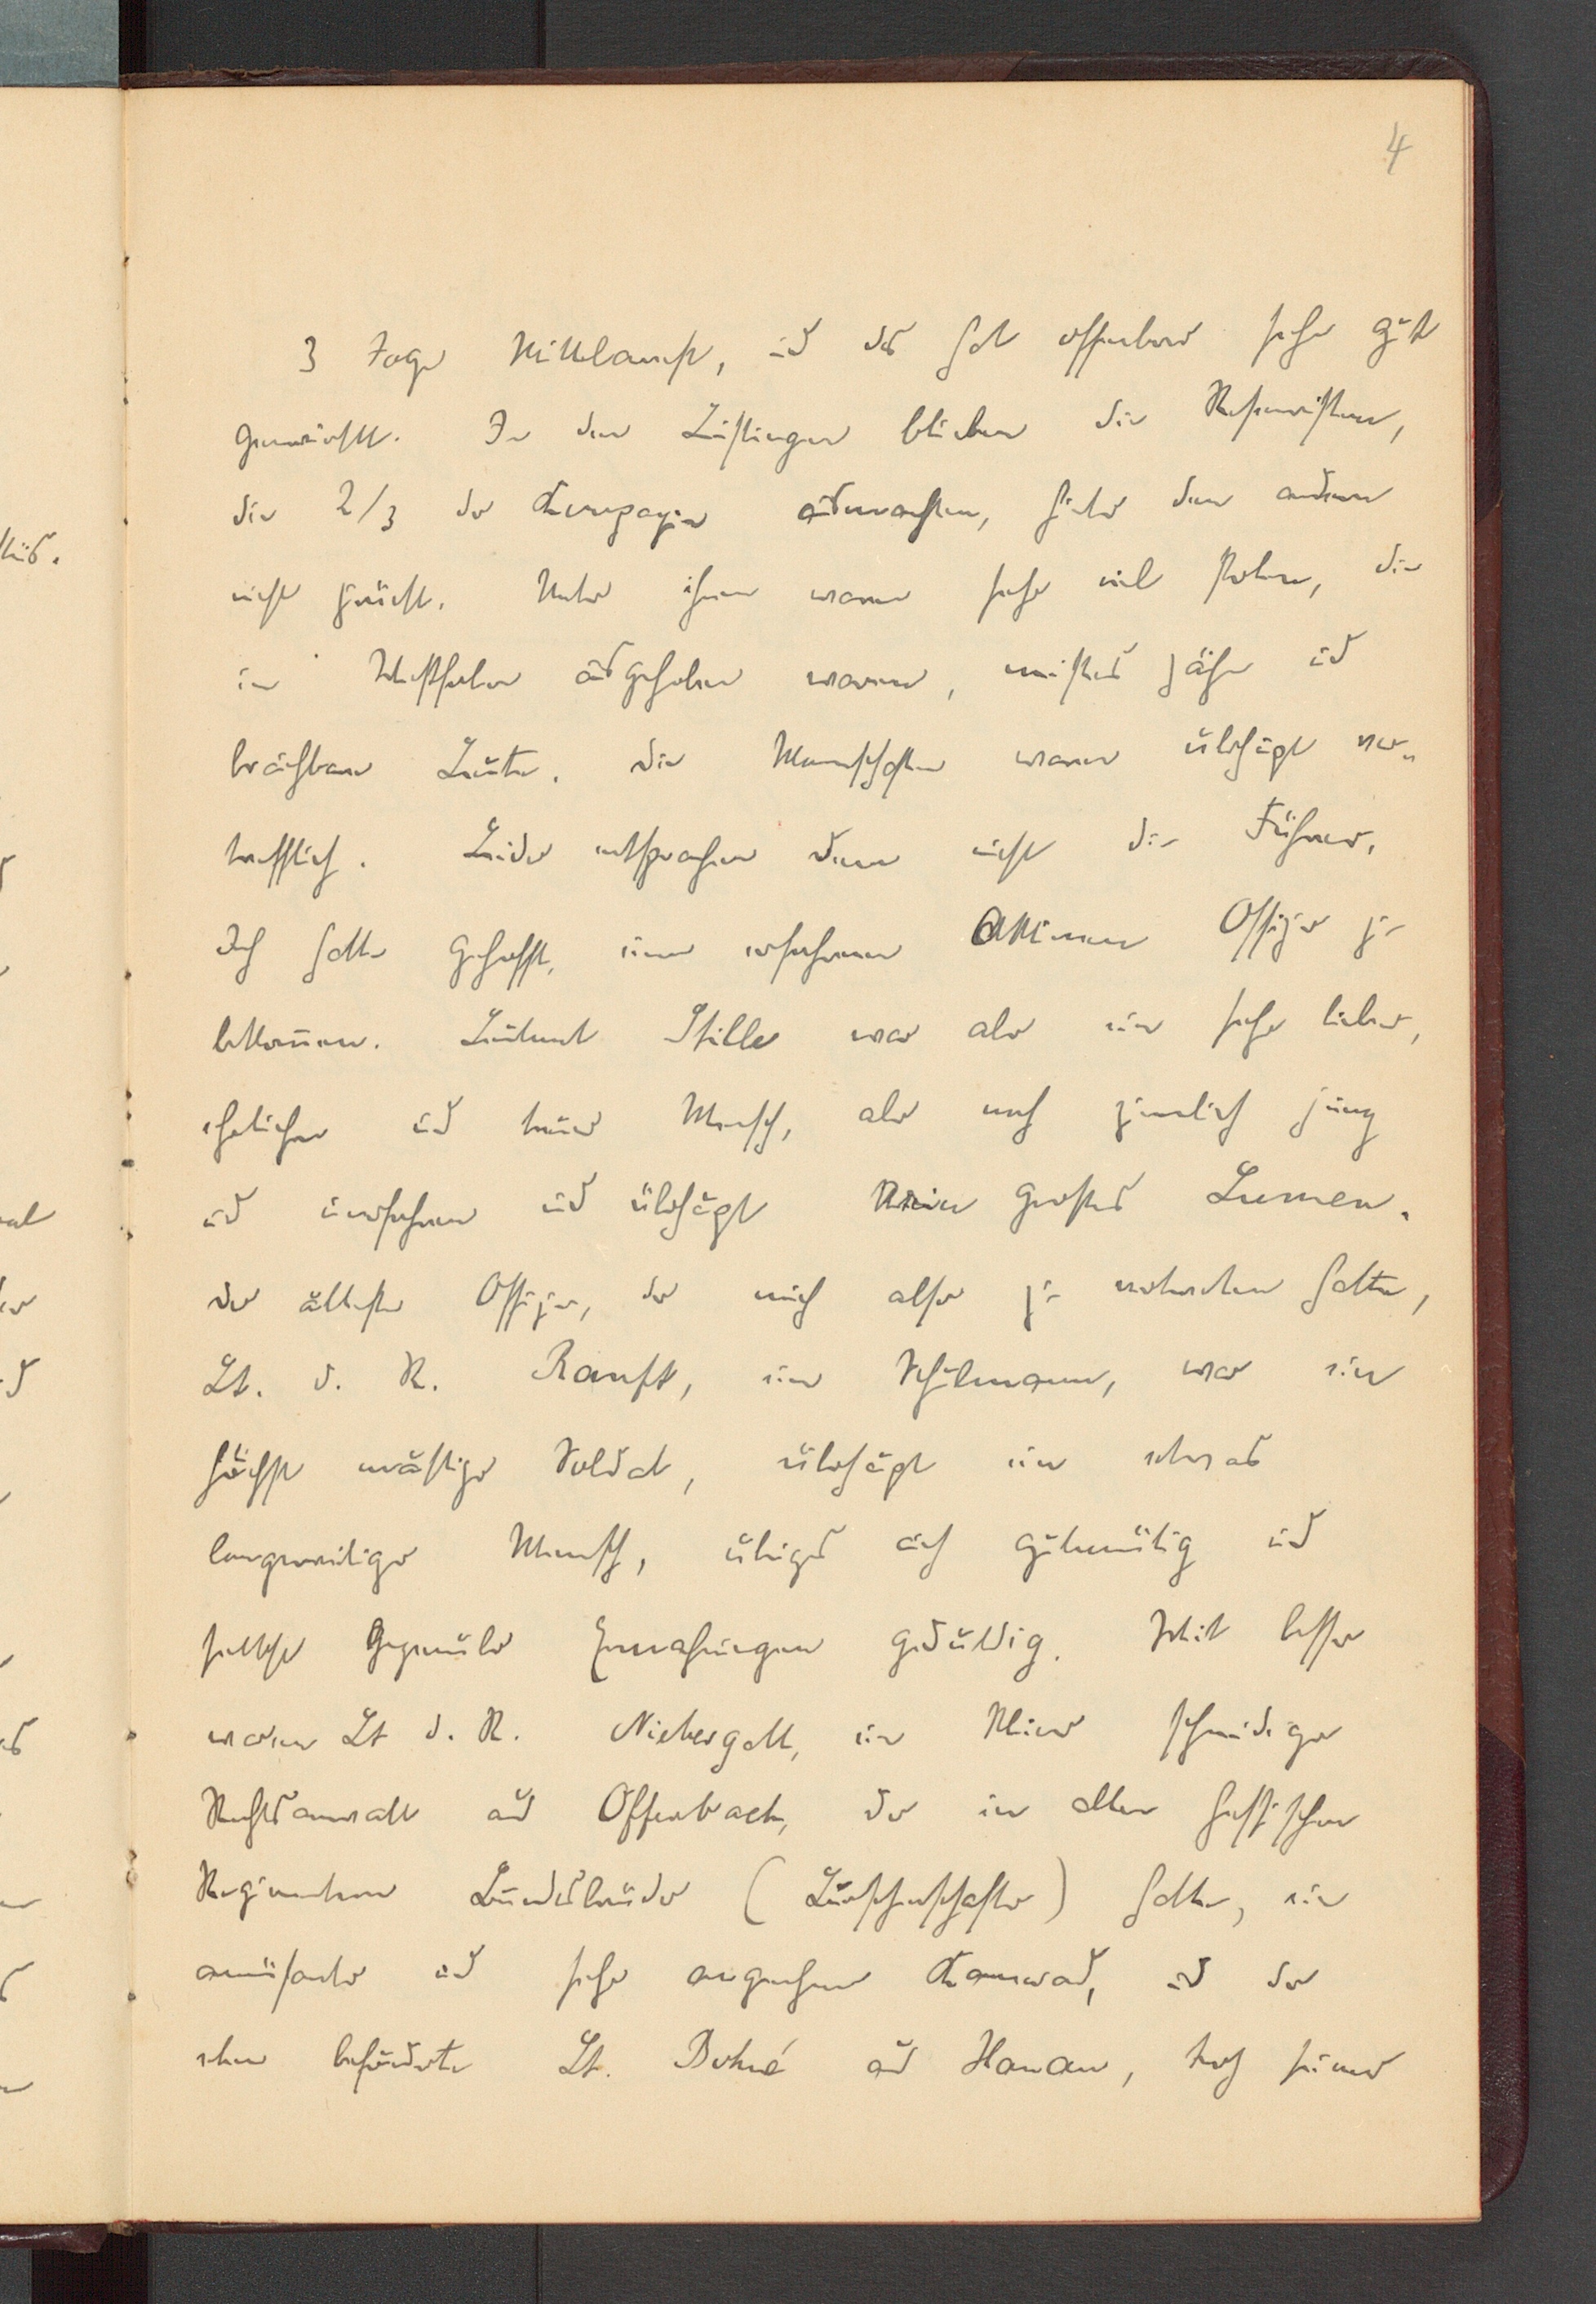 4
3 Tage Mittelarrest, und das hat offenbar sehr gut
gewirkt. In den Leistungen blieben die Reservisten,
die 2/3 der Kompagnie ausmachten, hinter den anderen
nicht zurück. Unter ihnen waren sehr viel Polen, die
in Westfalen ausgehoben waren, meistens zähe und
brauchbare Leute. Die Mannschaften waren überhaupt vor-
trefflich. Leider entsprachen dem nicht die Führer.
Ich hatte gehofft, einen erfahrenen aktiven Offizier zu
bekommen. Leutnant Stille war aber ein sehr lieber,
ehrlicher und treuer Mensch, aber noch ziemlich jung
und unerfahren und überhaupt kein grosses Lumen.
Der älteste Offizier, der mich also zu vertreten hatte,
Lt. d. R. Ranft, ein Schulmann, war ein
höchst mässiger Soldat, überhaupt ein etwas
langweiliger Mensch, übrigens auch gutmütig und
selbst gegenüber Ermahnungen geduldig. Weit besser
waren Lt d. R. Niebergall, ein kleiner schneidiger
Rechtsanwalt aus Offenbach, der in allen hessischen
Regimentern Bundesbrüder (Burschenschafter) hatte, ein
amüsanter und sehr angenehmer Kamerad, und der
eben beförderte Lt. Bohné aus Hanau, trotz seiner